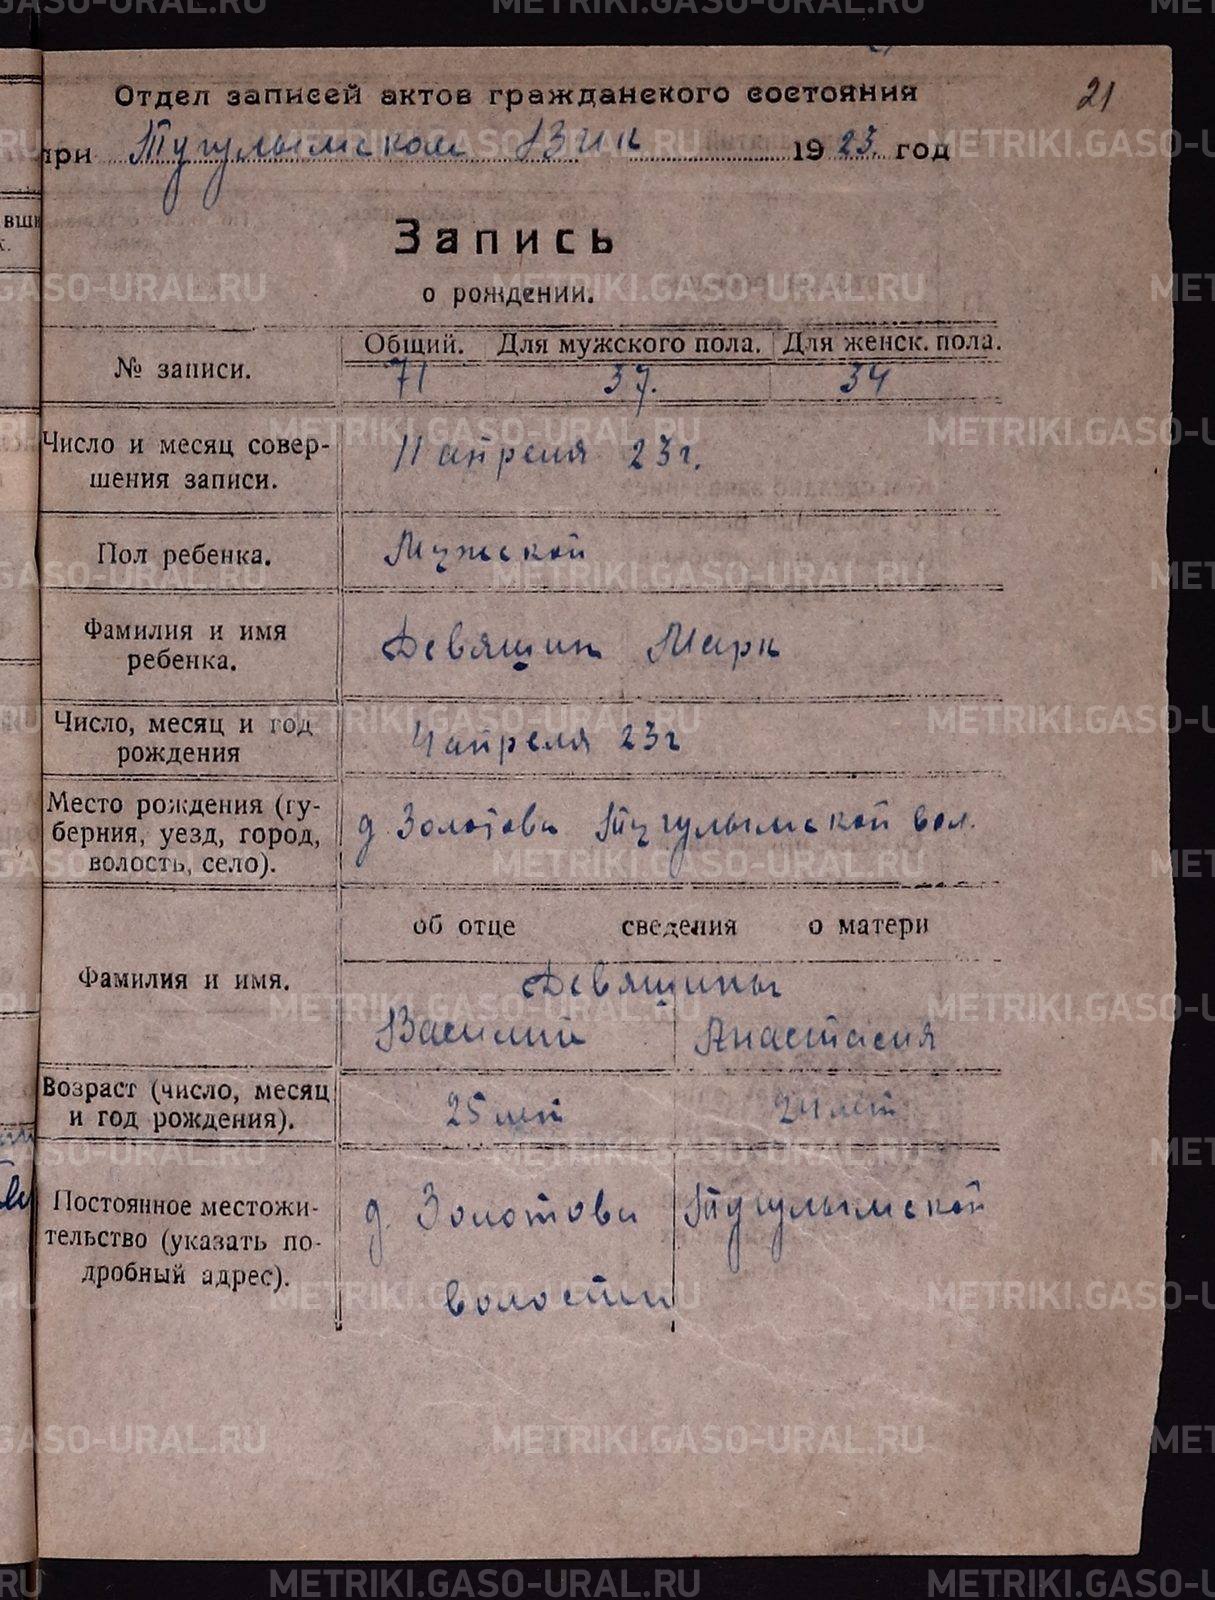 21
Отдел записей актов гражданского состояния
при Тугулымском Вик 1923 год
Запись
о рождении.
№ записи.
Общий. Для мужского пола. Для женск. пола.
71 37. 34
Число и месяц совер-
шения записи.
11 апреля 23 г.
Пол ребенка.
Мужской
Фамилия и имя
ребенка.
Девящин Марк
Число, месяц и год
рождения
4 апреля 23 г
Место рождения (гу-
берния, уезд, город,
волость, село).
д Золотова Тугулымской вол.
об отце сведения о матери
Фамилия и имя.
Девящины
Василий Анастасия
Возраст (число, месяц
и год рождения).
25 лет 24 лет
Постоянное местожи-
тельство (указать по-
дробный адрес).
д. Золотова Тугулымской
волости
METRIKI.GASO-URAL.RU